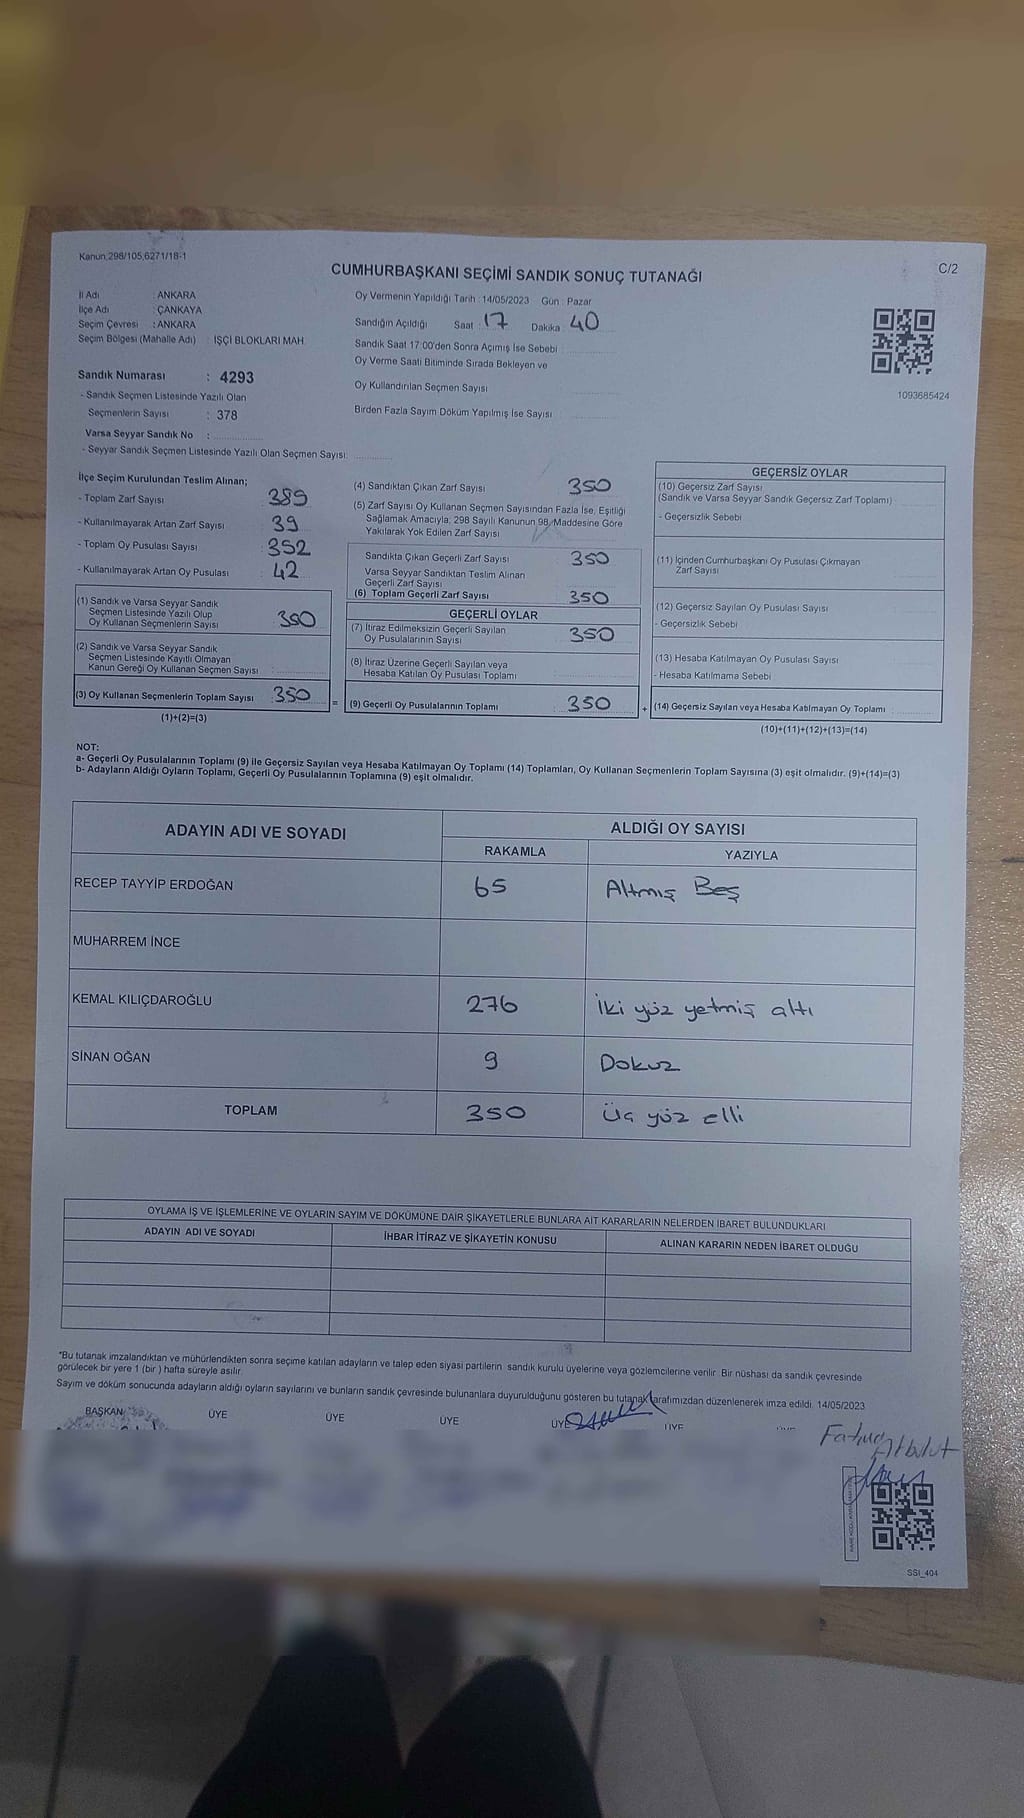 Kanun,298/105,6271/18-1
C/2
CUMHURBAŞKANI SEÇİMİ SANDIK SONUÇ TUTANAĞI
İl Adı : ANKARA
İlçe Adı : ÇANKAYA
Seçim Çevresi : ANKARA
Seçim Bölgesi (Mahalle Adı) : İŞÇİ BLOKLARI MAH.
Sandık Numarası : 4293
- Sandık Seçmen Listesinde Yazılı Olan
Seçmenlerin Sayısı : 378
Varsa Seyyar Sandık No :
- Seyyar Sandık Seçmen Listesinde Yazılı Olan Seçmen Sayısı:
Oy Vermenin Yapıldığı Tarih : 14/05/2023 Gün : Pazar
Sandığın Açıldığı Saat : 17 Dakika : 40
Sandık Saat 17:00'den Sonra Açımış İse Sebebi :
Oy Verme Saati Bitiminde Sırada Bekleyen ve
Oy Kullandırılan Seçmen Sayısı
Birden Fazla Sayım Döküm Yapılmış İse Sayısı
1093685424
İlçe Seçim Kurulundan Teslim Alınan;
- Toplam Zarf Sayısı : 389
- Kullanılmayarak Artan Zarf Sayısı : 39
- Toplam Oy Pusulası Sayısı : 352
- Kullanılmayarak Artan Oy Pusulası : 42
(1) Sandık ve Varsa Seyyar Sandık
Seçmen Listesinde Yazılı Olup
Oy Kullanan Seçmenlerin Sayısı : 350
(2) Sandık ve Varsa Seyyar Sandık
Seçmen Listesinde Kayıtlı Olmayan
Kanun Gereği Oy Kullanan Seçmen Sayısı :
(3) Oy Kullanan Seçmenlerin Toplam Sayısı : 350
(1)+(2)=(3)
(4) Sandıktan Çıkan Zarf Sayısı : 350
(5) Zarf Sayısı Oy Kullanan Seçmen Sayısından Fazla İse, Eşitliği
Sağlamak Amacıyla, 298 Sayılı Kanunun 98. Maddesine Göre
Yakılarak Yok Edilen Zarf Sayısı
Sandıkta Çıkan Geçerli Zarf Sayısı : 350
Varsa Seyyar Sandıktan Teslim Alınan
Geçerli Zarf Sayısı
(6) Toplam Geçerli Zarf Sayısı : 350
GEÇERLİ OYLAR
(7) İtiraz Edilmeksizin Geçerli Sayılan
Oy Pusulalarının Sayısı : 350
(8) İtiraz Üzerine Geçerli Sayılan veya
Hesaba Katılan Oy Pusulası Toplamı
= (9) Geçerli Oy Pusulalarının Toplamı : 350
GEÇERSİZ OYLAR
(10) Geçersiz Zarf Sayısı
(Sandık ve Varsa Seyyar Sandık Geçersiz Zarf Toplamı)
- Geçersizlik Sebebi
(11) İçinden Cumhurbaşkanı Oy Pusulası Çıkmayan
Zarf Sayısı
(12) Geçersiz Sayılan Oy Pusulası Sayısı
- Geçersizlik Sebebi
(13) Hesaba Katılmayan Oy Pusulası Sayısı
- Hesaba Katılmama Sebebi
+ (14) Geçersiz Sayılan veya Hesaba Katılmayan Oy Toplamı :
(10)+(11)+(12)+(13)=(14)
NOT:
a- Geçerli Oy Pusulalarının Toplamı (9) ile Geçersiz Sayılan veya Hesaba Katılmayan Oy Toplamı (14) Toplamları, Oy Kullanan Seçmenlerin Toplam Sayısına (3) eşit olmalıdır. (9)+(14)=(3)
b- Adayların Aldığı Oyların Toplamı, Geçerli Oy Pusulalarının Toplamına (9) eşit olmalıdır.
ADAYIN ADI VE SOYADI ALDIĞI OY SAYISI
RAKAMLA YAZIYLA
RECEP TAYYİP ERDOĞAN 65 Altmış Beş
MUHARREM İNCE
KEMAL KILIÇDAROĞLU 276 İki yüz yetmiş altı
SİNAN OĞAN 9 Dokuz
TOPLAM 350 Üç yüz elli
OYLAMA İŞ VE İŞLEMLERİNE VE OYLARIN SAYIM VE DÖKÜMÜNE DAİR ŞİKAYETLERLE BUNLARA AİT KARARLARIN NELERDEN İBARET BULUNDUKLARI
ADAYIN ADI VE SOYADI İHBAR İTİRAZ VE ŞİKAYETİN KONUSU ALINAN KARARIN NEDEN İBARET OLDUĞU
*Bu tutanak imzalandıktan ve mühürlendikten sonra seçime katılan adayların ve talep eden siyasi partilerin sandık kurulu üyelerine veya gözlemcilerine verilir. Bir nüshası da sandık çevresinde
görülecek bir yere 1 (bir) hafta süreyle asılır.
Sayım ve döküm sonucunda adayların aldığı oyların sayılarını ve bunların sandık çevresinde bulunanlara duyurulduğunu gösteren bu tutanak tarafımızdan düzenlenerek imza edildi. 14/05/2023
BAŞKAN ÜYE ÜYE ÜYE ÜYE ÜYE ÜYE
SSI_404